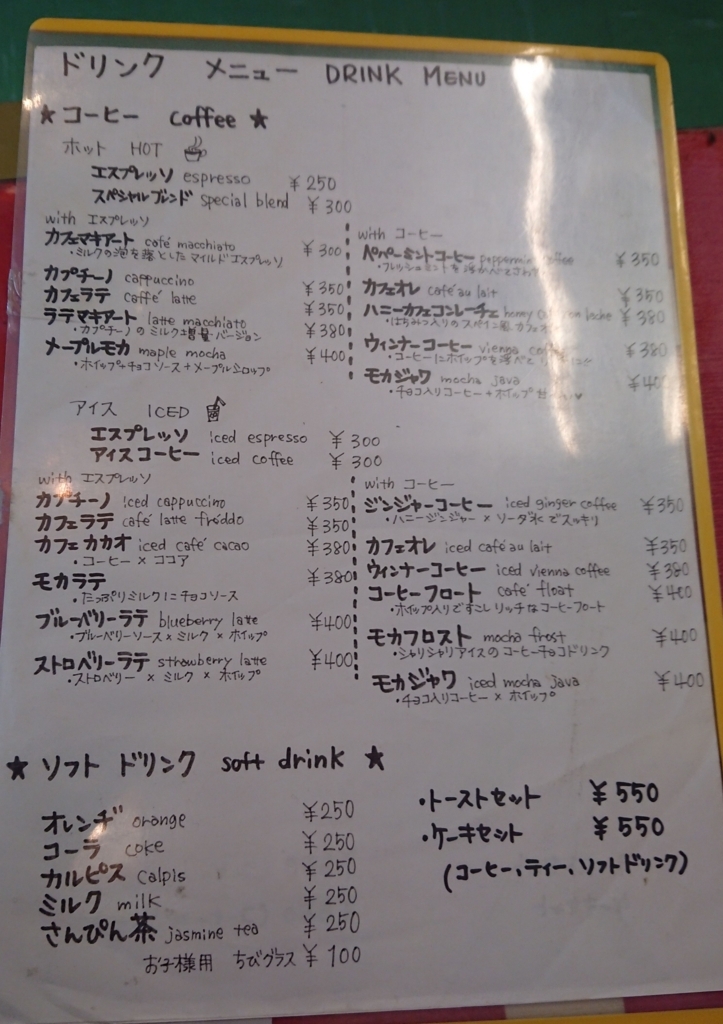 ドリンク メニュー DRINK MENU
★ コーヒー coffee ★
ホット HOT
エスプレッソ espresso ¥250
スペシャルブレンド special blend ¥300
with エスプレッソ
カフェマキアート café macchiato ¥300
・ミルクの泡を落とした マイルドエスプレッソ
カプチーノ cappuccino ¥350
カフェラテ caffé latte ¥350
ラテマキアート latte macchiato ¥380
・カプチーノのミルク増量バージョン
メープルモカ maple mocha ¥400
・ホイップ+チョコソース+メープルシロップ
with コーヒー
ペパーミントコーヒー peppermint coffee ¥350
・フレッシュミントを浮かべて
カフェオレ café au lait ¥350
ハニーカフェコンレーチェ honey leche ¥380
・はちみつ入りのスペイン風カフェオレ
ウィンナーコーヒー vienna coffee ¥380
・コーヒーにホイップを浮べて
モカジャワ mocha java ¥400
・チョコ入りコーヒー+ホイップ
アイス ICED
エスプレッソ iced espresso ¥300
アイスコーヒー iced coffee ¥300
with エスプレッソ
カプチーノ iced cappuccino ¥350
カフェラテ café latte freddo ¥350
カフェカカオ iced café cacao ¥380
・コーヒー×ココア
モカラテ ¥380
・たっぷりミルクにチョコソース
ブルーベリーラテ blueberry latte ¥400
・ブルーベリーソース×ミルク×ホイップ
ストロベリーラテ strawberry latte ¥400
・ストロベリー × ミルク × ホイップ
with コーヒー
ジンジャーコーヒー iced ginger coffee ¥350
・ハニージンジャー×ソーダ水でスッキリ
カフェオレ iced café au lait ¥350
ウィンナーコーヒー iced vienna coffee ¥380
コーヒーフロート café float ¥400
・ホイップ入りですこしリッチなコーヒーフロート
モカフロスト mocha frost ¥400
・シャリシャリアイスのコーヒーチョコドリンク
モカジャワ iced mocha java ¥400
・チョコ入りコーヒー×ホイップ
★ ソフトドリンク soft drink ★
オレンヂ orange ¥250
コーラ coke ¥250
カルピス calpis ¥250
ミルク milk ¥250
さんぴん茶 jasmine tea ¥250
お子様用 ちびグラス ¥100
・トーストセット ¥550
・ケーキセット ¥550
(コーヒー、ティー、ソフトドリンク)